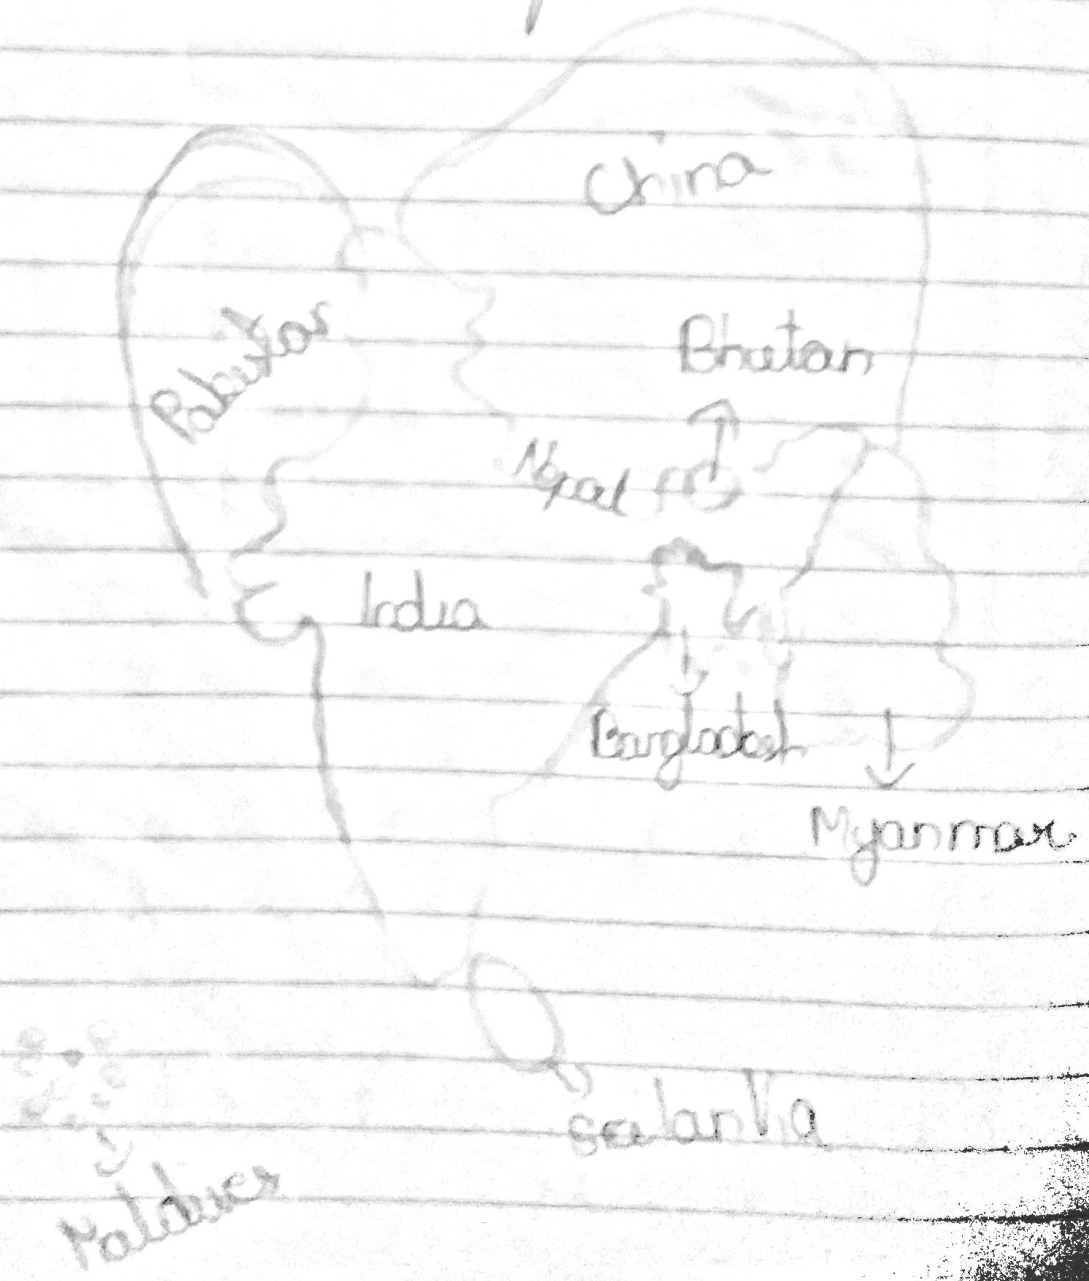 China
Pakistan
Bhutan
Nepal
India
Bangladesh
Myanmar
Srilanka
Maldives